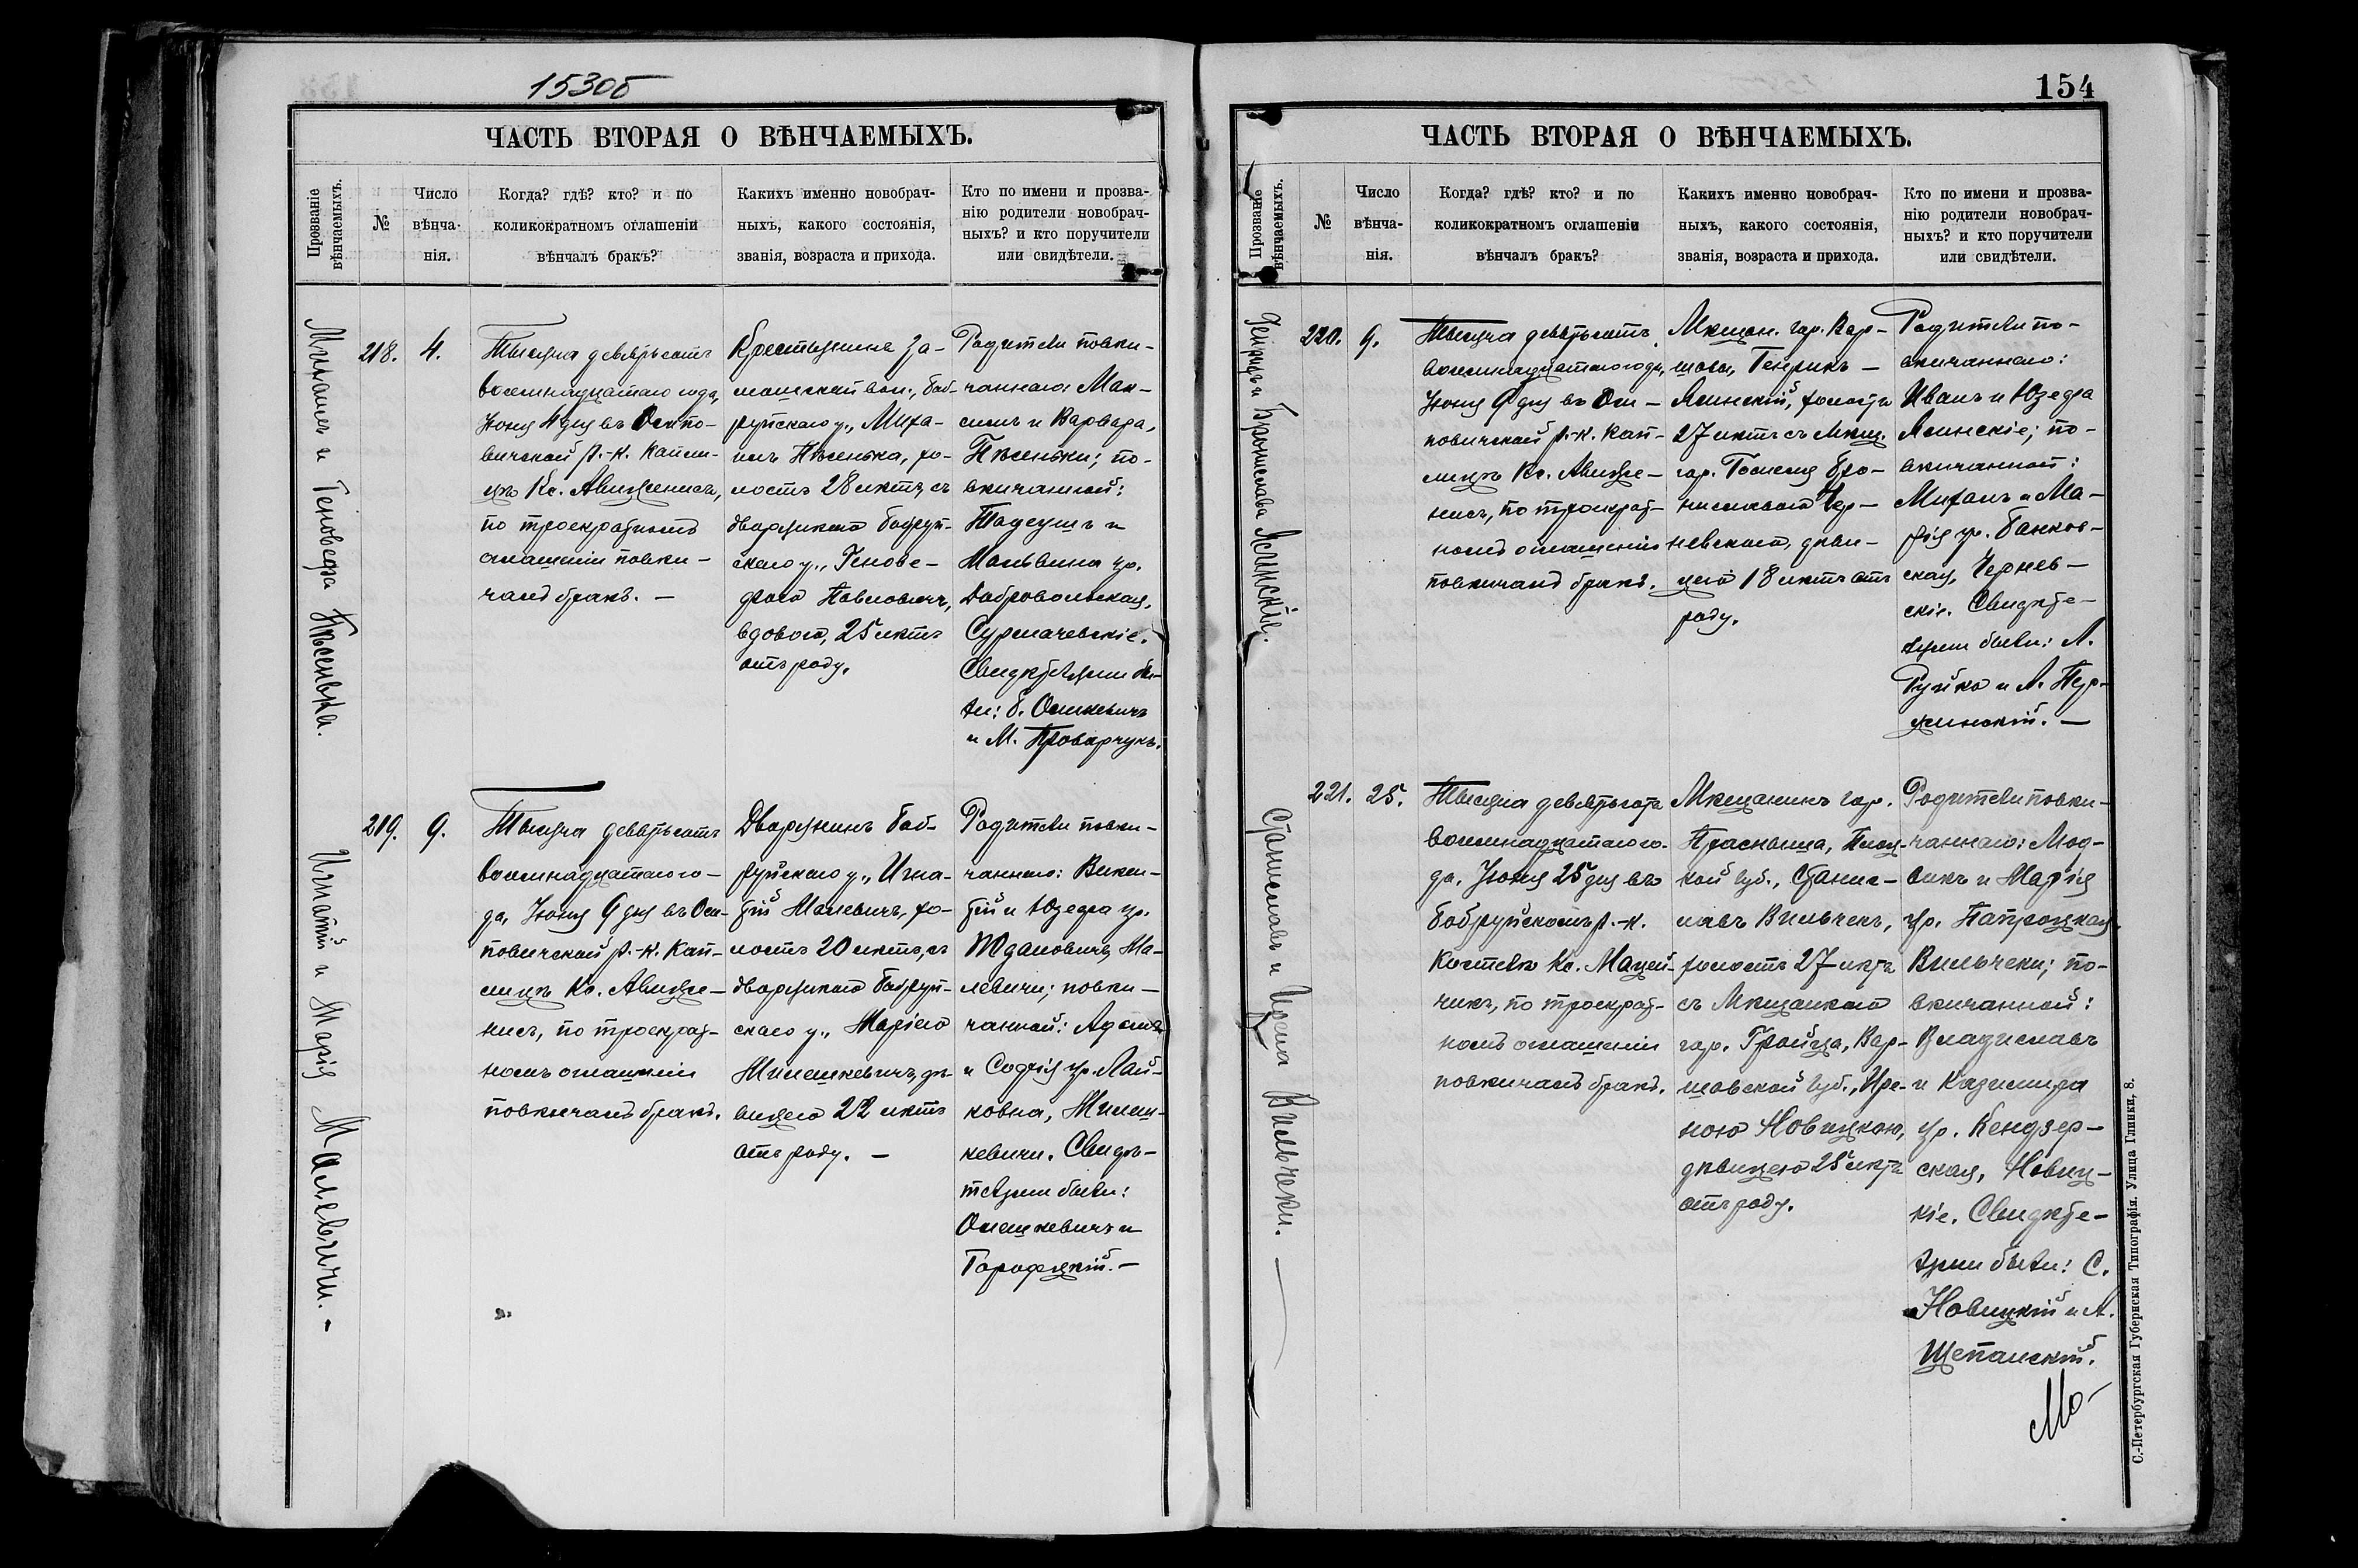 153об
ЧАСТЬ ВТОРАЯ О ВѢНЧАЕМЫХЪ.
Прозваніе
вѣнчаемыхъ.
№
Число
вѣнча-
нія.
Когда? гдѣ? кто? и по
коликократномъ оглашеніи
вѣнчалъ бракъ?
Какихъ именно новобрач-
ныхъ, какого состоянія,
званія, возраста и прихода.
Кто по имени и прозва-
нію родители новобрач-
ныхъ? и кто поручители
или свидѣтели.
Михаилъ и Геновефа Пѣсенька.
218.
4.
Тысяча девятьсотъ
восемнадцатаго года,
Іюня 4 дня въ Осипо-
вичской р.-к. капли-
цѣ Кс. Авиженисъ,
по троекратномъ
оглашеніи повѣн-
чалъ бракъ. —
Крестьянина За-
мошской вол., Боб-
руйскаго у., Миха-
илъ Пѣсенька, хо-
лостъ 28 лѣтъ, съ
дворянкою Бобруй-
скаго у., Генове-
фою Павловичъ,
вдовою, 25 лѣтъ
отъ роду.
Родители повѣн-
чаннаго: Мак-
симъ и Варвара,
Пѣсеньки; по-
вѣнчанной:
Тадеушъ и
Мальвина ур.
Добровольская,
Сурмачевскіе.
Свидѣтелями бы-
ли: Б. Ошкевичъ
и М. Проварчукъ.
Игнатій и Марія Малевичи. -
219.
9.
Тысяча девятьсотъ
восемнадцатаго го-
да, Іюня 9 дня въ Оси-
повичской р.-к. кап-
лицѣ Кс. Авиже-
нисъ, по троекрат-
номъ оглашеніи
повѣнчалъ бракъ.
Дворянинъ Боб-
руйскаго у., Игна-
тій Малевичъ, хо-
лостъ 20 лѣтъ, съ
дворянкою Бобруй-
скаго у., Маріею
Жилешкевичъ, дѣ-
вицею 22 лѣтъ
отъ роду. —
Родители повѣн-
чаннаго: Викен-
тій и Юзефа ур.
Ждановичъ, Ма-
левичи; повѣн-
чанной: Адамъ
и Софія ур. Лай-
ковна, Жилеш-
кевичи. Свидѣ-
телями были:
Олешкевичъ и
Городецкій. —
154
ЧАСТЬ ВТОРАЯ О ВѢНЧАЕМЫХЪ.
Прозваніе
вѣнчаемыхъ.
№
Число
вѣнча-
нія.
Когда? гдѣ? кто? и по
коликократномъ оглашеніи
вѣнчалъ бракъ?
Какихъ именно новобрач-
ныхъ, какого состоянія,
званія, возраста и прихода.
Кто по имени и прозва-
нію родители новобрач-
ныхъ? и кто поручители
или свидѣтели.
Генрихъ и Брониславa Ясинскіе.
220.
9.
Тысяча девятьсотъ
восемнадцатаго года,
Іюня 9 дня въ Оси-
повичской р.-к. кап-
лицѣ Кс. Авиже-
нисъ, по троекрат-
номъ оглашеніи
повѣнчалъ бракъ.
Мѣщан. гор. Вар-
шавы, Генрикъ
Ясинскій, холостъ
27 лѣтъ съ мѣщ.
гор. Гомеля Бро-
ниславою Чер-
невскою, дѣви-
цею 18 лѣтъ отъ
роду.
Родители по-
вѣнчаннаго:
Иванъ и Юзефа
Ясинскіе; по-
вѣнчанной:
Михаилъ и Ма-
рія ур. Банков-
ская, Чернев-
скіе. Свидѣте-
лями были: А.
Руйко и А.
Станиславъ и Ирена Вильчеки. —
221.
25.
Тысяча девятьсотъ
восемнадцатаго го-
да, Іюня 25 дня въ
Бобруйскомъ р.-к.
Костелѣ Кс. Мацей-
чикъ, по троекрат-
номъ оглашеніи
повѣнчалъ бракъ.
Мѣщанинъ гор.
Прасныша, Плоц-
кой губ., Станис-
лавъ Вильчекъ,
холостъ 27 лѣтъ
съ мѣщанкою
гор. Гройца, Вар-
шавской губ., Ире-
ною Новицкою,
дѣвицею 25 лѣтъ
отъ роду.
Родители повѣн-
чаннаго: Люд-
викъ и Марія
ур. Папроцкая,
Вильчеки; по-
вѣнчанной:
Владиславъ
и Казимира
ур. Кендзер-
ская, Новиц-
кіе. Свидѣте-
лями были: С.
Новицкій и А.
Щепанскій.
С.-Петербургская Губернская Типографія. Улица Глинки, 8.